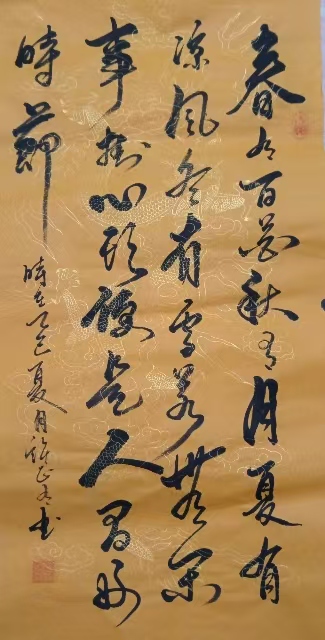 春有百花秋有月夏有
凉风冬有雪若無闲
事掛心頭便是人间好
時節
時在乙巳夏月正书